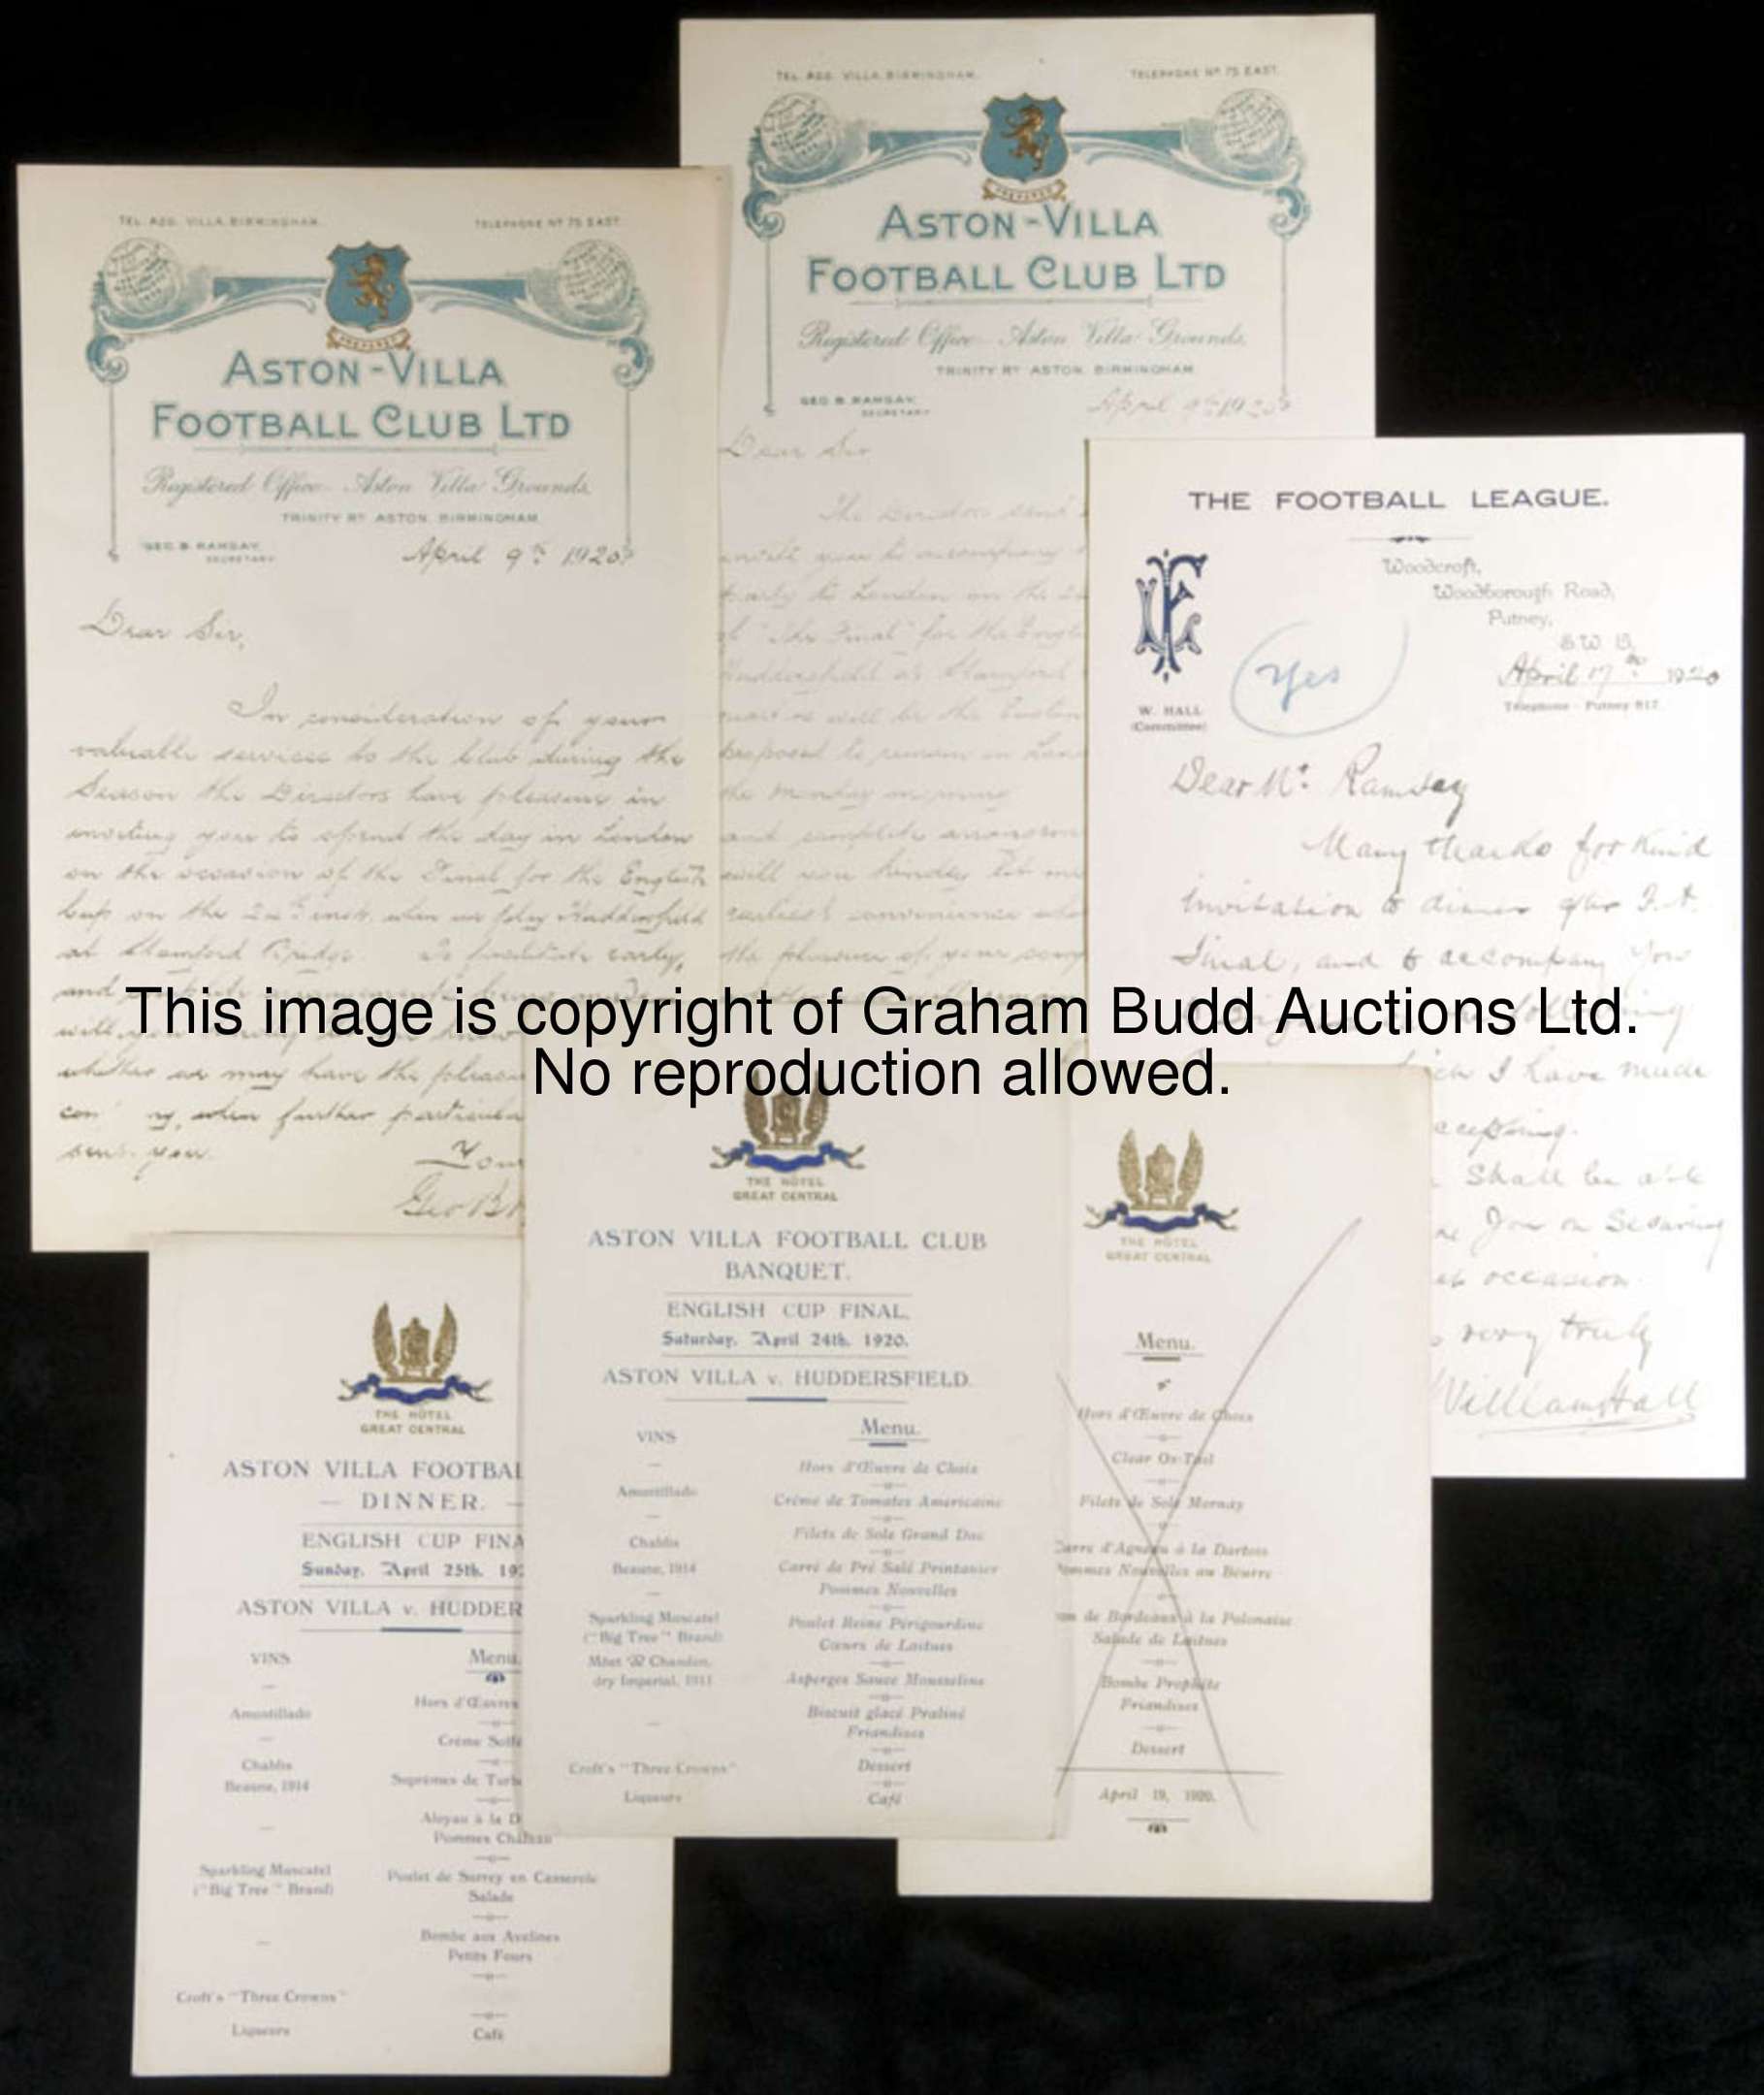 TEL. ADD. VILLA, BIRMINGHAM.
TELEPHONE Nº 75 EAST.
PREPARED
ASTON-VILLA
FOOTBALL CLUB LTD
Registered Office - Aston Villa Grounds,
TRINITY RD ASTON, BIRMINGHAM
GEO. B. RAMSAY,
SECRETARY
April 9th 1920
Dear Sir,
In consideration of your
valuable services to the Club during the
Season the Directors have pleasure in
inviting you to spend the day in London
on the occasion of the Final for the English
Cup on the 24th inst. when we play Huddersfield
at Stamford Bridge. To facilitate early,
and
will you
whether we may have the pleasu
con ny, when further particula
sent you.
You
Geo B R
TEL. ADD. VILLA, BIRMINGHAM.
TELEPHONE Nº 75 EAST.
PREPARED
ASTON-VILLA
FOOTBALL CLUB LTD
Registered Office - Aston Villa Grounds,
TRINITY RD ASTON, BIRMINGHAM
GEO. B. RAMSAY,
SECRETARY
April 9th 1920
Dear Sir
The Directors
invite you to accompany
party to London on the 24
of "The Final" for the Engl
Huddersfield at Stamford
will be the
proposed to remain in Lon
the Monday morning
and complete arrangem
will you kindly let me
earliest convenience
the pleasure of your com
THE FOOTBALL LEAGUE.
Woodcroft,
Woodborough Road,
Putney,
S W 15,
April 17th 1920
Telephone - Putney 817.
W. HALL
(Committee)
Yes
Dear Mr. Ramsay
Many thanks for kind
invitation to dinner after F.A.
Final, and to accompany you
following
ich I have made
accepting.
Shall be able
you on securing
occasion.
very truly
William Hall
This image is copyright of Graham Budd Auctions Ltd.
No reproduction allowed.
THE HOTEL
GREAT CENTRAL
ASTON VILLA FOOTBAL
— DINNER. —
ENGLISH CUP FINA
Sunday, April 25th, 19
ASTON VILLA v. HUDDER
VINS
Amontillado
Chablis
Beaune, 1914
Sparkling Muscatel
("Big Tree" Brand)
Croft's "Three Crowns"
Liqueurs
Menu.
Hors d'Œuvres
Crème Solf
Suprêmes de Turb
Aloyau à la D
Pommes Château
Poulet de Surrey en Casserole
Salade
Bombe aux Avelines
Petits Fours
Café
THE HOTEL
GREAT CENTRAL
ASTON VILLA FOOTBALL CLUB
BANQUET.
ENGLISH CUP FINAL,
Saturday, April 24th, 1920.
ASTON VILLA v. HUDDERSFIELD.
VINS
Amontillado
Chablis
Beaune, 1914
Sparkling Muscatel
("Big Tree" Brand)
Möet & Chandon,
dry Imperial, 1911
Croft's "Three Crowns"
Liqueurs
Menu.
Hors d'Œuvre de Choix
Crème de Tomates Americaine
Filets de Sole Grand Duc
Carré de Pré Salé Printanier
Pommes Nouvelles
Poulet Reine Périgourdine
Cœurs de Laitues
Asperges Sauce Mousseline
Biscuit glacé Praliné
Friandises
Dessert
Café
THE HOTEL
GREAT CENTRAL
Menu.
Hors d'Œuvre de Choix
Clear Ox-Tail
Filets de Sole Mornay
Carre d'Agneau à la Dartois
Pommes Nouvelles au Beurre
de Bordeaux à la Polonaise
Salade de Laitues
Bombe Prophète
Friandises
Dessert
April 19, 1920.